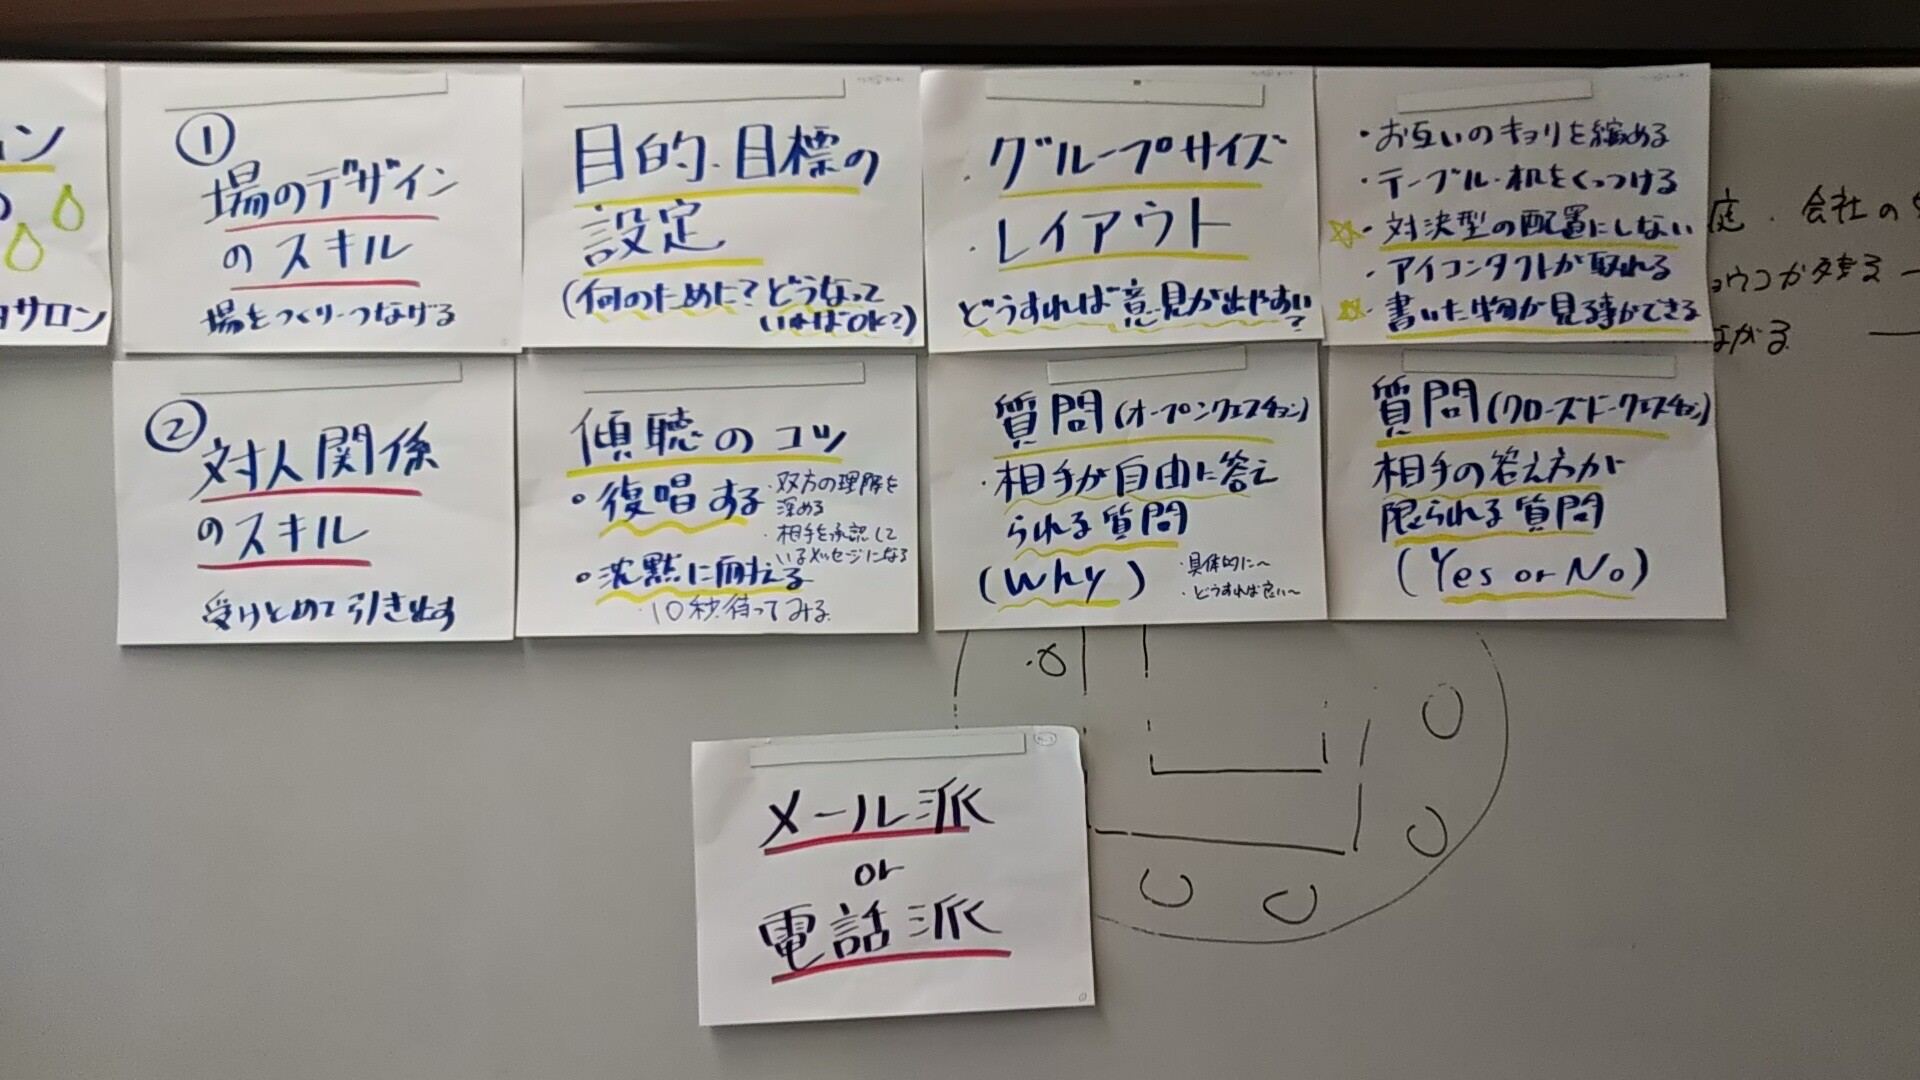 ン
の
サロン
①
場のデザイン
のスキル
場をつくり・つなげる
目的・目標の
設定
(何のために?どうなって
いればOK?)
・グループサイズ
・レイアウト
どうすれば意見が出やすい
?
・お互いのキョリを縮める
・テーブル・机をくっつける
☆・対決型の配置にしない
・アイコンタクトが取れる
☆・書いた物が見る事ができる
庭・会社の
ョウコが残る ー
ながる ー
②
対人関係
のスキル
受けとめて引き出す
傾聴のコツ
・復唱する
・双方の理解を
深める
・相手を承認して
いるメッセージになる
・沈黙に耐える
・10秒待ってみる
質問(オープンクエスチョン)
・相手が自由に答え
られる質問
(Why)
・具体的に〜
・どうすれば良い〜
質問(クローズドークエスチョン)
相手の答え方が
限られる質問
(Yes or No)
メール派
or
電話派